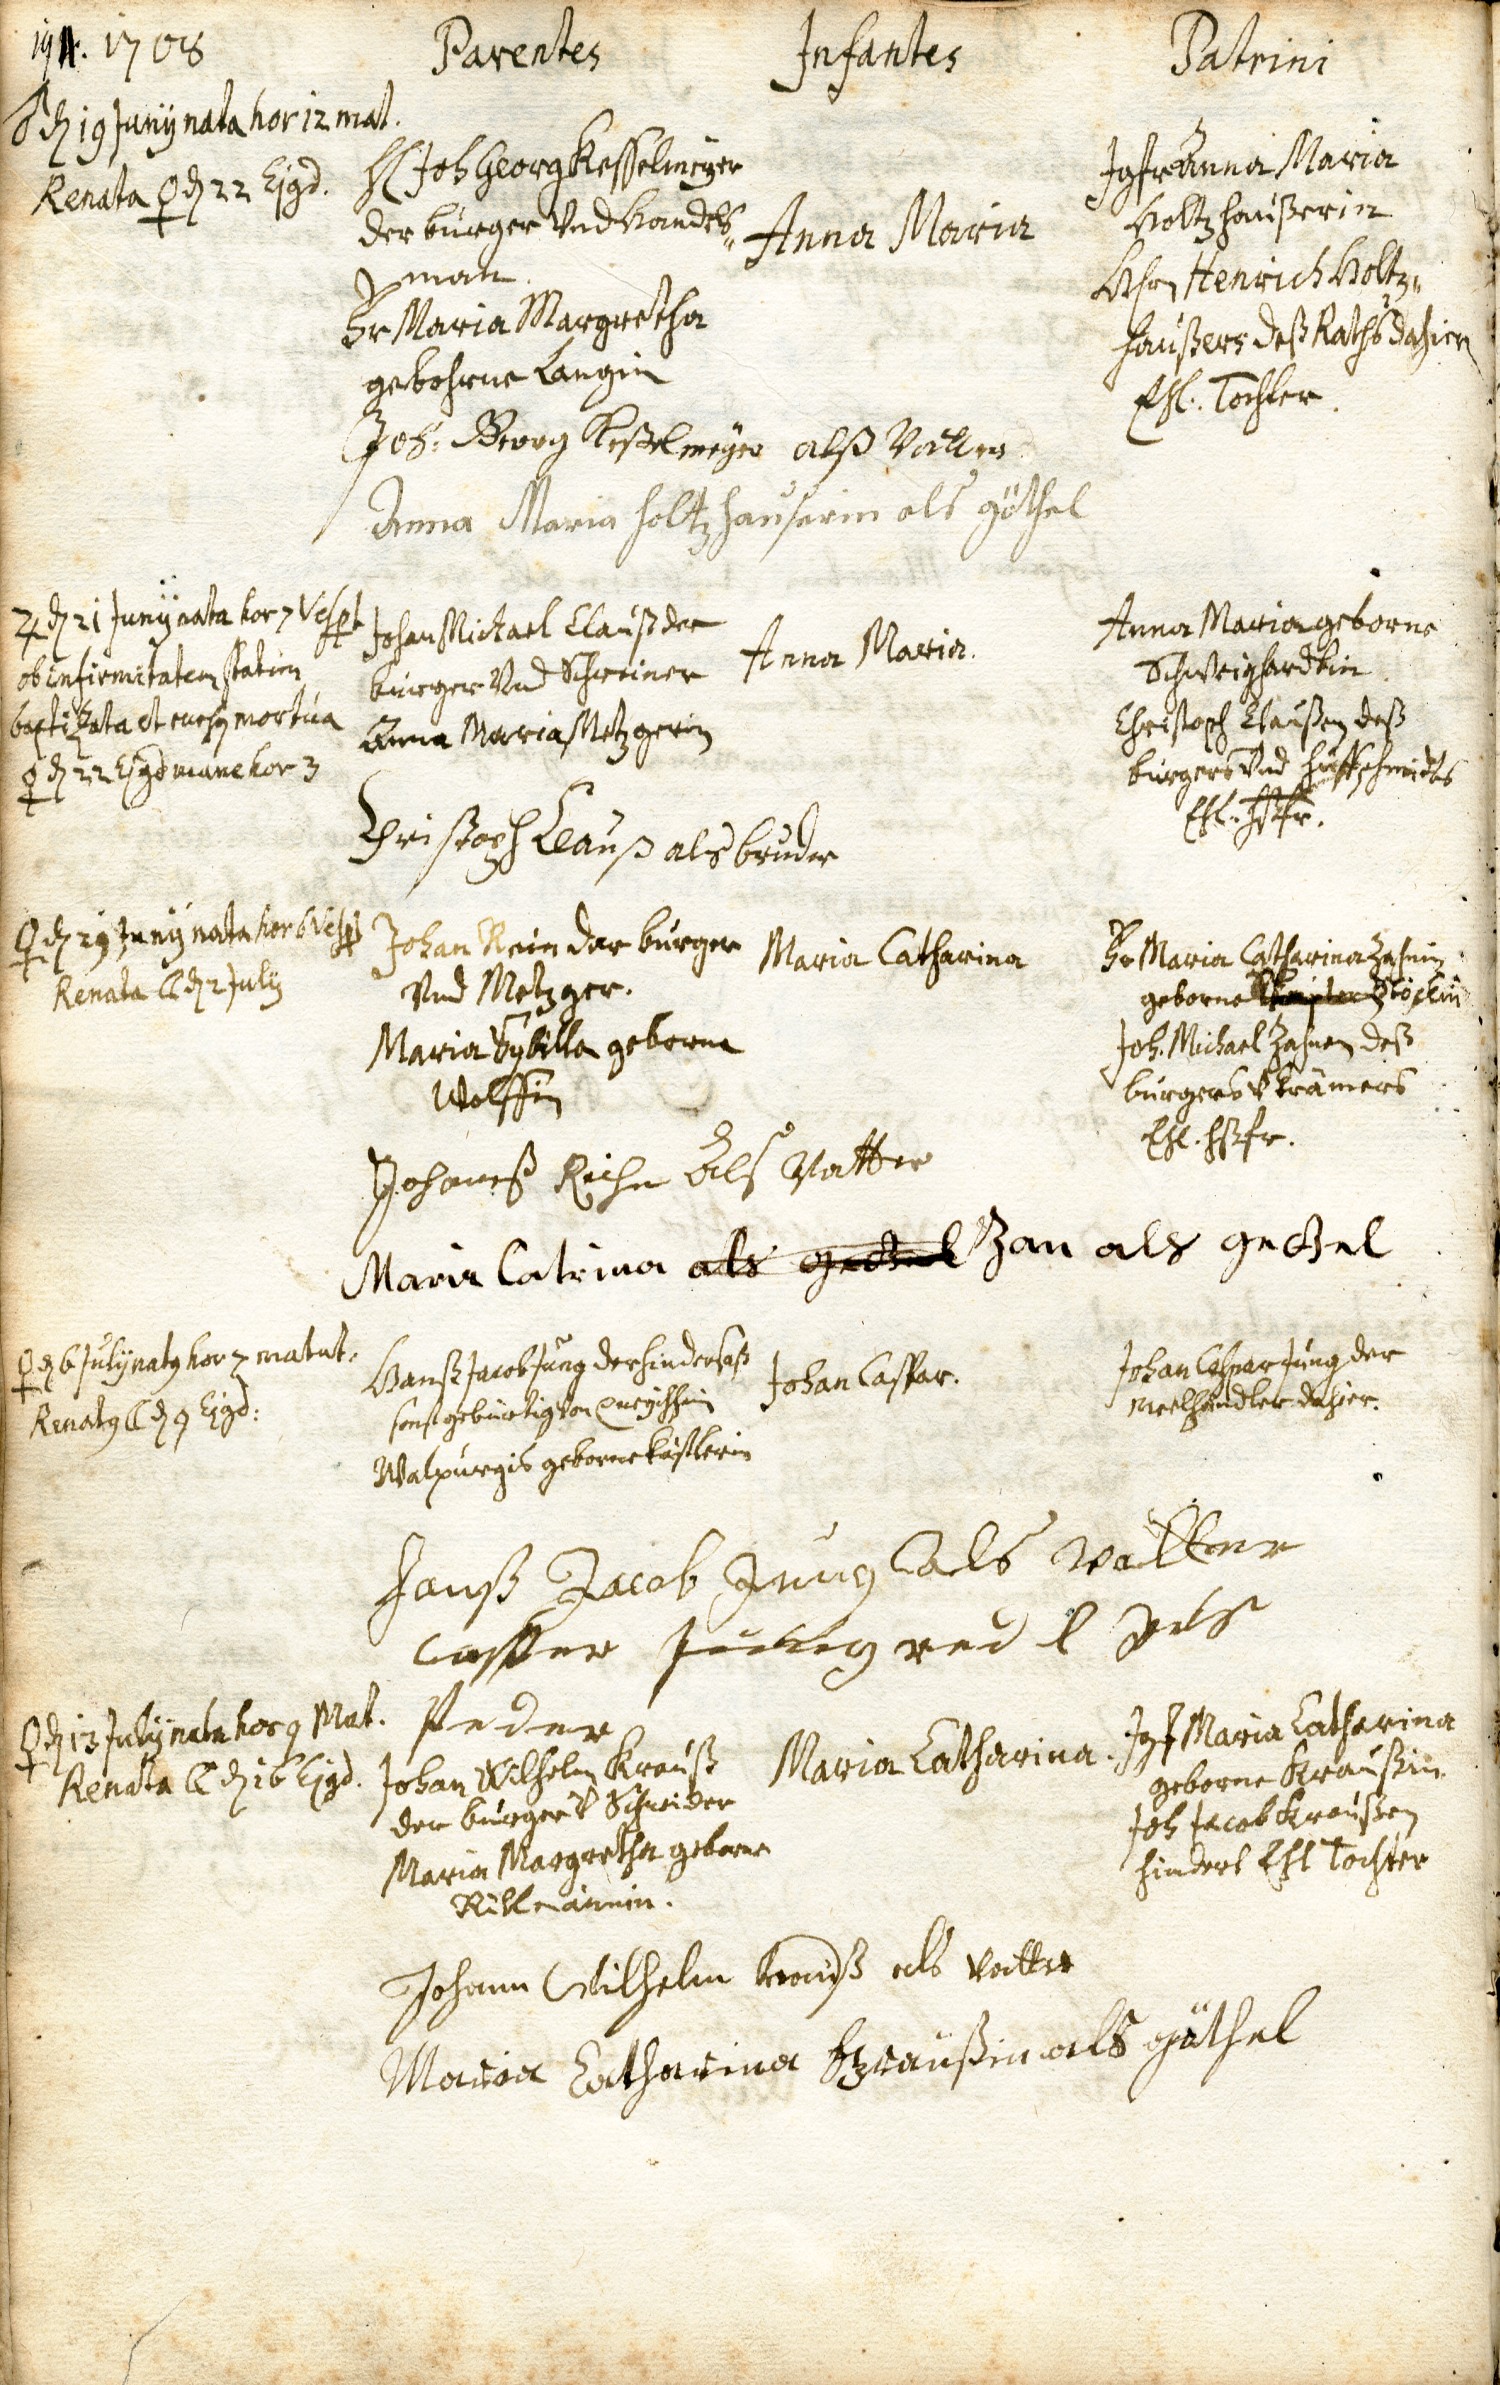 1708 Parentes Infantes Patrini
♂ den 19 Junij nata hor 12 mat.
Renata ♀ den 22 Ejgd.
H Joh Georg Kesselmeyer
der burger Vnd Handels
man.
Fr Maria Margretha
gebohrne Langin
Anna Maria
Jgfr Anna Maria
Holtzhaußerin
Hrn Henrich Holtz„
haußers deß Raths dahier
Ehl. Tochter.
Joh: Georg Keßelmeyer alß Vatter
Anna Maria Holtzhauserin als göthel
♃ den 21 Junij nata hor 7 Vespt
ob infirmitatem statim
baptizata et mortua
♀ den 22 Ejgd mane hor 3
Johan Michael Clauß der
burger Vnd Schreiner
Anna Maria Metzgerin
Anna Maria.
Anna Maria geborne
Schweighardtin
Christoph Claußen deß
burgers Vnd Huffschmidts
Ehl. Hßfr.
Christoph Clauß als bruder
♀ den 29 Junij nata hor 6 Vespt
Renata ☾ den 2 July
Johan Rein der burger
Vnd Metzger.
Maria Sybilla geborne
Wolffin
Maria Catharina
Fr Maria Catharina Zahnin
geborne
Joh. Michael Zahnen deß
burgers V Krämers
Ehl. Hßfr.
Johanneß Reihn Als Vatter
Maria Catrina als gettel Zan als gettel
♀ den 6 July natus hor 7 matut.
Renatus ☾ den 9 Ejgd:
Hanß Jacob Jung der hindersaß
sonst gebürtig von
Walpurgis geborne Kästlerin
Johan Caspar.
Johan Caspar Jung der
meelhändler dahier.
Hanß Jacob Jung als vatter
Casper Jung als
Peder
♀ den 13 July nata hor 9 Mat.
Renata ☾ den 16 Ejgd.
Johan Wilhelm Krauß
der burger V Schneider
Maria Margretha geborne
Maria Catharina.
Jgf Maria Catharina
geborne Kraußin
Joh Jacob Kraußen
Ehl Tochter
Johann Wilhelm Krauß als Vatter
Maria Catharina Kraußin als göthel